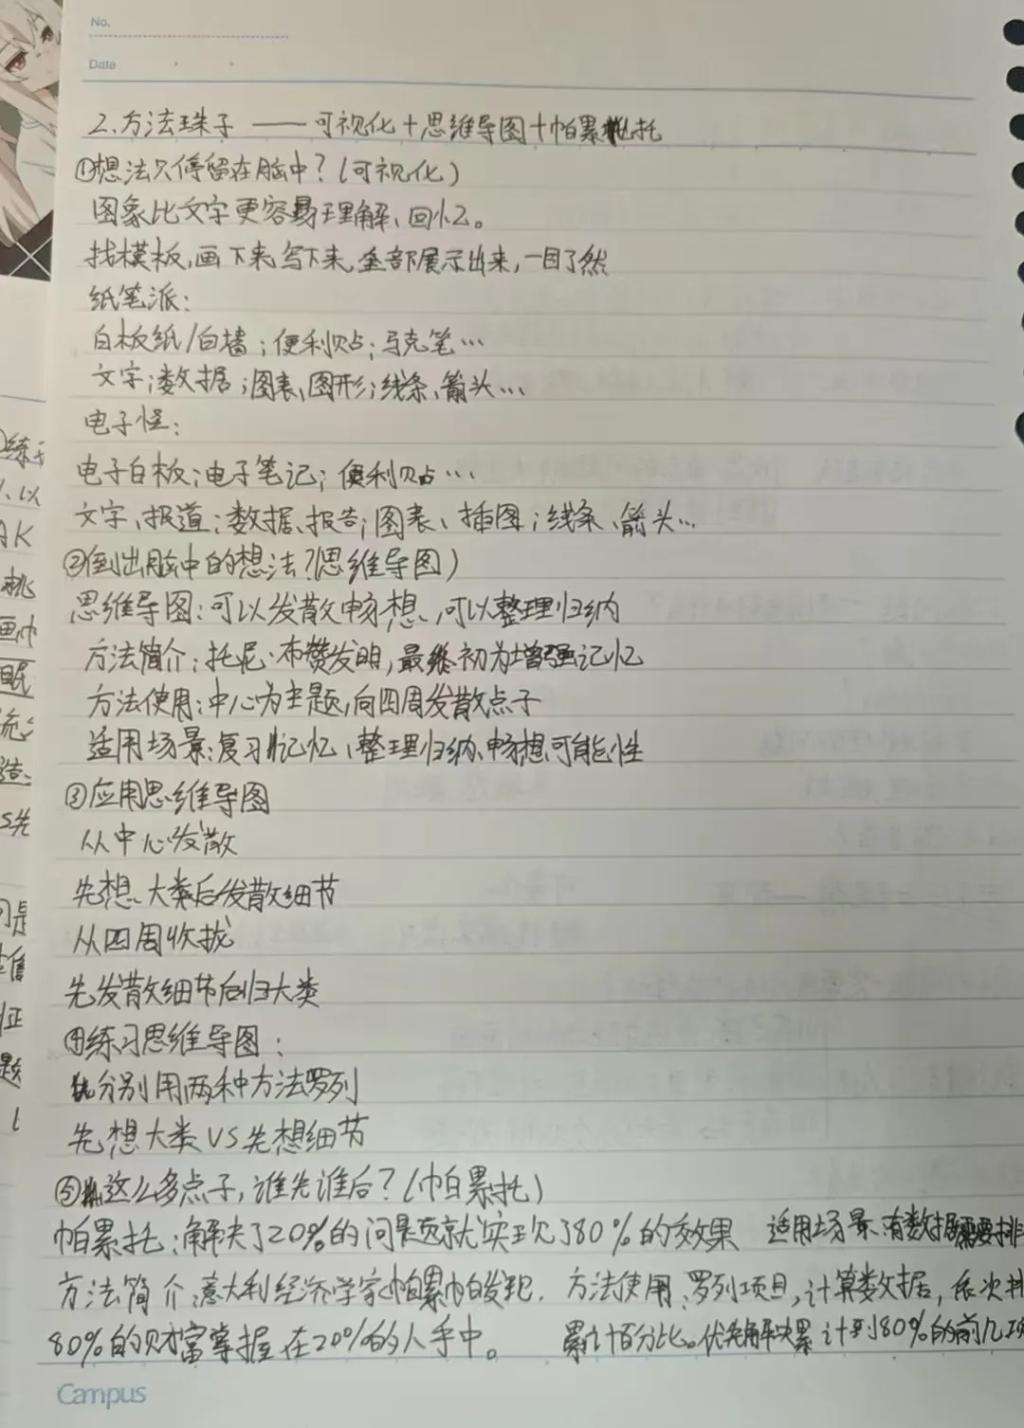 No.
Date
2.方法珠子 —— 可视化+思维导图+帕累托
①想法只停留在脑中？(可视化)
图象比文字更容易理解、回忆。
找模板,画下来,写下来,全部展示出来,一目了然
纸笔派：
白板纸/白墙；便利贴；马克笔…
文字；数据；图表、图形；线条、箭头…
电子怪：
电子白板；电子笔记；便利贴…
文字、报道；数据、报告；图表、插图；线条、箭头…
②倒出脑中的想法？(思维导图)
思维导图：可以发散畅想,可以整理归纳
方法简介：托尼·布赞发明,最初为增强记忆
方法使用：中心为主题,向四周发散点子
适用场景：复习记忆、整理归纳、畅想可能性
③应用思维导图
从中心发散
先想大类后发散细节
从四周收拢
先发散细节后归大类
④练习思维导图：
分别用两种方法罗列
先想大类VS先想细节
⑤这么多点子,谁先谁后？(帕累托)
帕累托：解决了20%的问题就实现了80%的效果 适用场景：有数据需要排
方法简介:意大利经济学家帕累帕发现. 方法使用：罗列项目,计算数据,依次排
80%的财富掌握在20%的人手中。 累计百分比。优先解决累计到80%的前几项
Campus